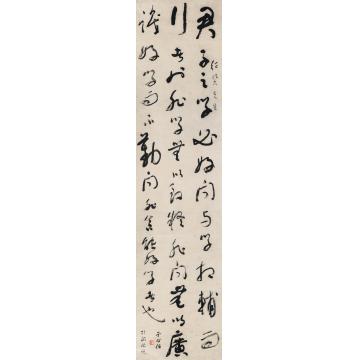 君子之學必好問與學相輔而
行者也非學無以致疑非問無以廣
識好學而不勤問非真能好學者也
于右任